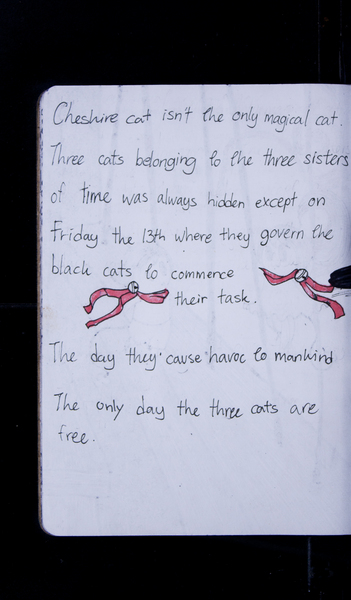 Cheshire cat isn't the only magical cat.
Three cats belonging to the three sisters
of time was always hidden except on
Friday the 13th where they govern the
black cats to commerce
their task.
The day they cause havoc to mankind
The only day the three cats are
free.